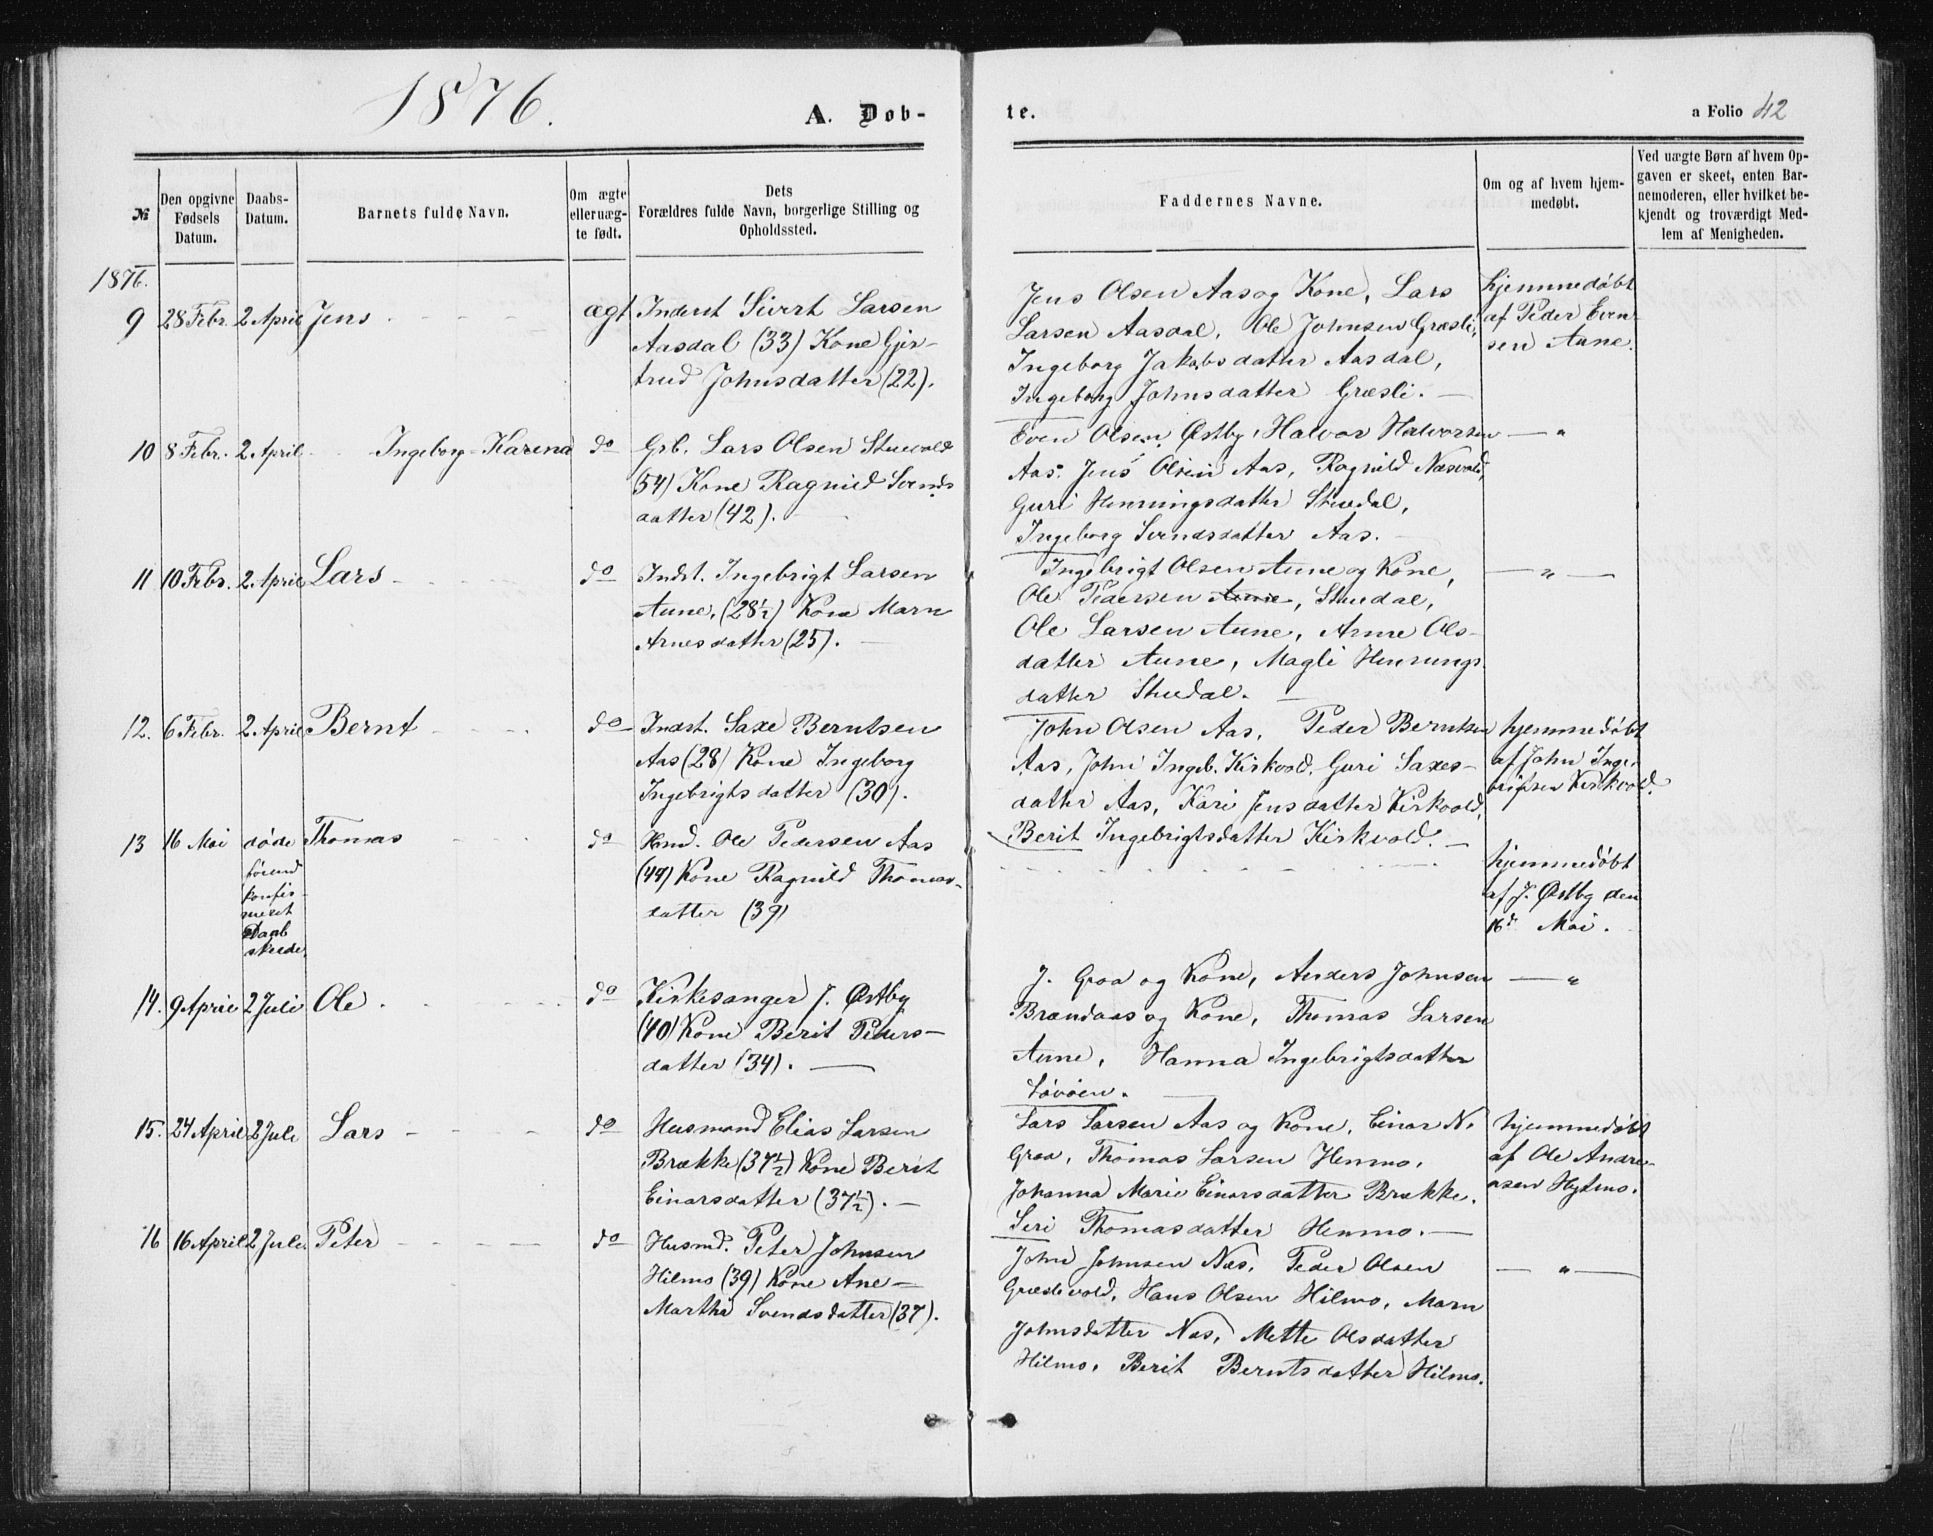 1876.
A. Døb-
te.
a Folio 42
№
Den opgivne Fødsels Datum.
Daabs-Datum.
Barnets fulde Navn.
Om ægte eller uæg-te født.
Dets Forældres fulde Navn, borgerlige Stilling og Opholdssted.
Faddernes Navne.
Om og af hvem hjem-medøbt.
Ved uægte Børn af hvem Op-gaven er skeet, enten Bar-nemoderen, eller hvilket be-kjendt og troværdigt Med-lem af Menigheden.
1876.
9 28 Febr. 2 April Jens ægt Inderst Sivert Larsen
Aasdal (33) Kone Gjer-
trud Johnsdatter (22).
Jens Olsen Aas og Kone, Lars
Larsen Aasdal, Ole Johnsen Græsli,
Ingeborg Jakobsdatter Aasdal,
Ingeborg Johnsdatter Græsli. —
hjemmedøbt
af Peder Even-
sen Aune.
10 8 Febr. 2 April Ingeborg-Karena do Grb. Lars Olsen Stuevold
(54) Kone Ragnild Svends
datter (42).
Even Olsen Østby, Halvor Halvorsen
Aas. Jens Olsen Aas, Ragnild Næsvold,
Guri Henningsdatter Stuedal,
Ingeborg Svendsdatter Aas. —
— "
11 10 Febr. 2 April Lars do Indst. Ingebrigt Larsen
Aune, (28½) Kone Marn
Arnesdatter (25). —
Ingebrigt Olsen Aune og Kone,
Ole Pedersen Aune, Stuedal,
Ole Larsen Aune, Anne Ols-
datter Aune, Magli Hennings
datter Stuedal. —
— " —
12. 6 Febr. 2 April Bernt do Indst. Saxe Berntsen
Aas (28) Kone Ingeborg
Ingebrigtsdatter (30).
John Olsen Aas, Peder Berntsen
Aas, John Ingeb. Kirkvold, Guri Saxes-
datter Aas, Kari Jensdatter Kirkvold,
Berit Ingebrigtsdatter Kirkvold. —
hjemmedøbt
af John Inge-
brigtsen Kirkvold.
13 16 Mai døde Thomas do Hmd. Ole Pedersen Aas
(44) Kone Ragnild Thomas-
datter (39)
førend
konfir-
meret
Daab
skede.
hjemmedøbt
af J. Østby den
16d Mai.
14. 9 April 2 Juli Ole. do Kirkesanger J. Østby
(40) Kone Berit Peders-
datter (34). —
J. Graa og Kone, Anders Johnsen
Brændaas og Kone, Thomas Larsen
Aune, Hanna Ingebrigtsdatter
Løvøen.
— "
15. 24 April 2 Juli Lars do Husmand Elias Larsen
Brække (37½) Kone Berit
Einarsdatter (37½). —
Lars Larsen Aas og Kone, Einar N.
Graa, Thomas Larsen Henmo,
Johanna Marie Einarsdatter Brække,
Seri Thomasdatter Henmo. —
hjemmedøbt
af Ole Andre-
asen Hytmo.
16 16 April 2 Juli Peter do Husmd. Peter Johnsen
Hilmo (39) Kone Ane-
Martha Svendsdatter (37).
John Johnsen Næs, Peder Olsen
Grædevold, Hans Olsen Hilmo, Marn
Johnsdatter Næs, Mette Olsdatter
Hilmo, Berit Berntsdatter Hilmo.
— " —